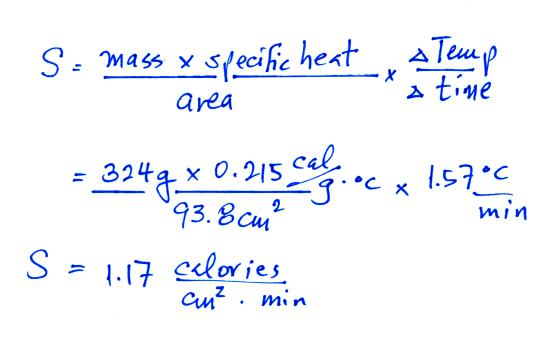 S = mass x specific heat / area x Δ Temp / Δ time
= 324g x 0.215 cal / g·°C / 93.8cm² x 1.57 °C / min
S = 1.17 calories / cm² · min